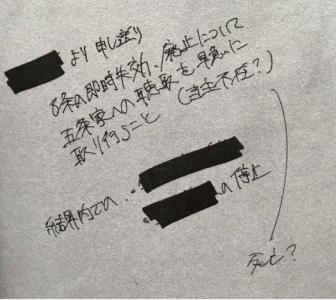 より 申し送り
6条の即時失効、廃止について
五条家への聴取を早急に
取り行うこと (当主不在?)
結界内での
の停止
死亡?